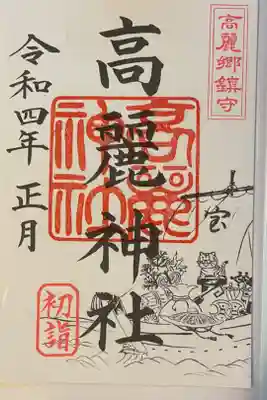 高麗郷鎮守
高麗神社
令和四年 正月
初詣
高麗神社
宝